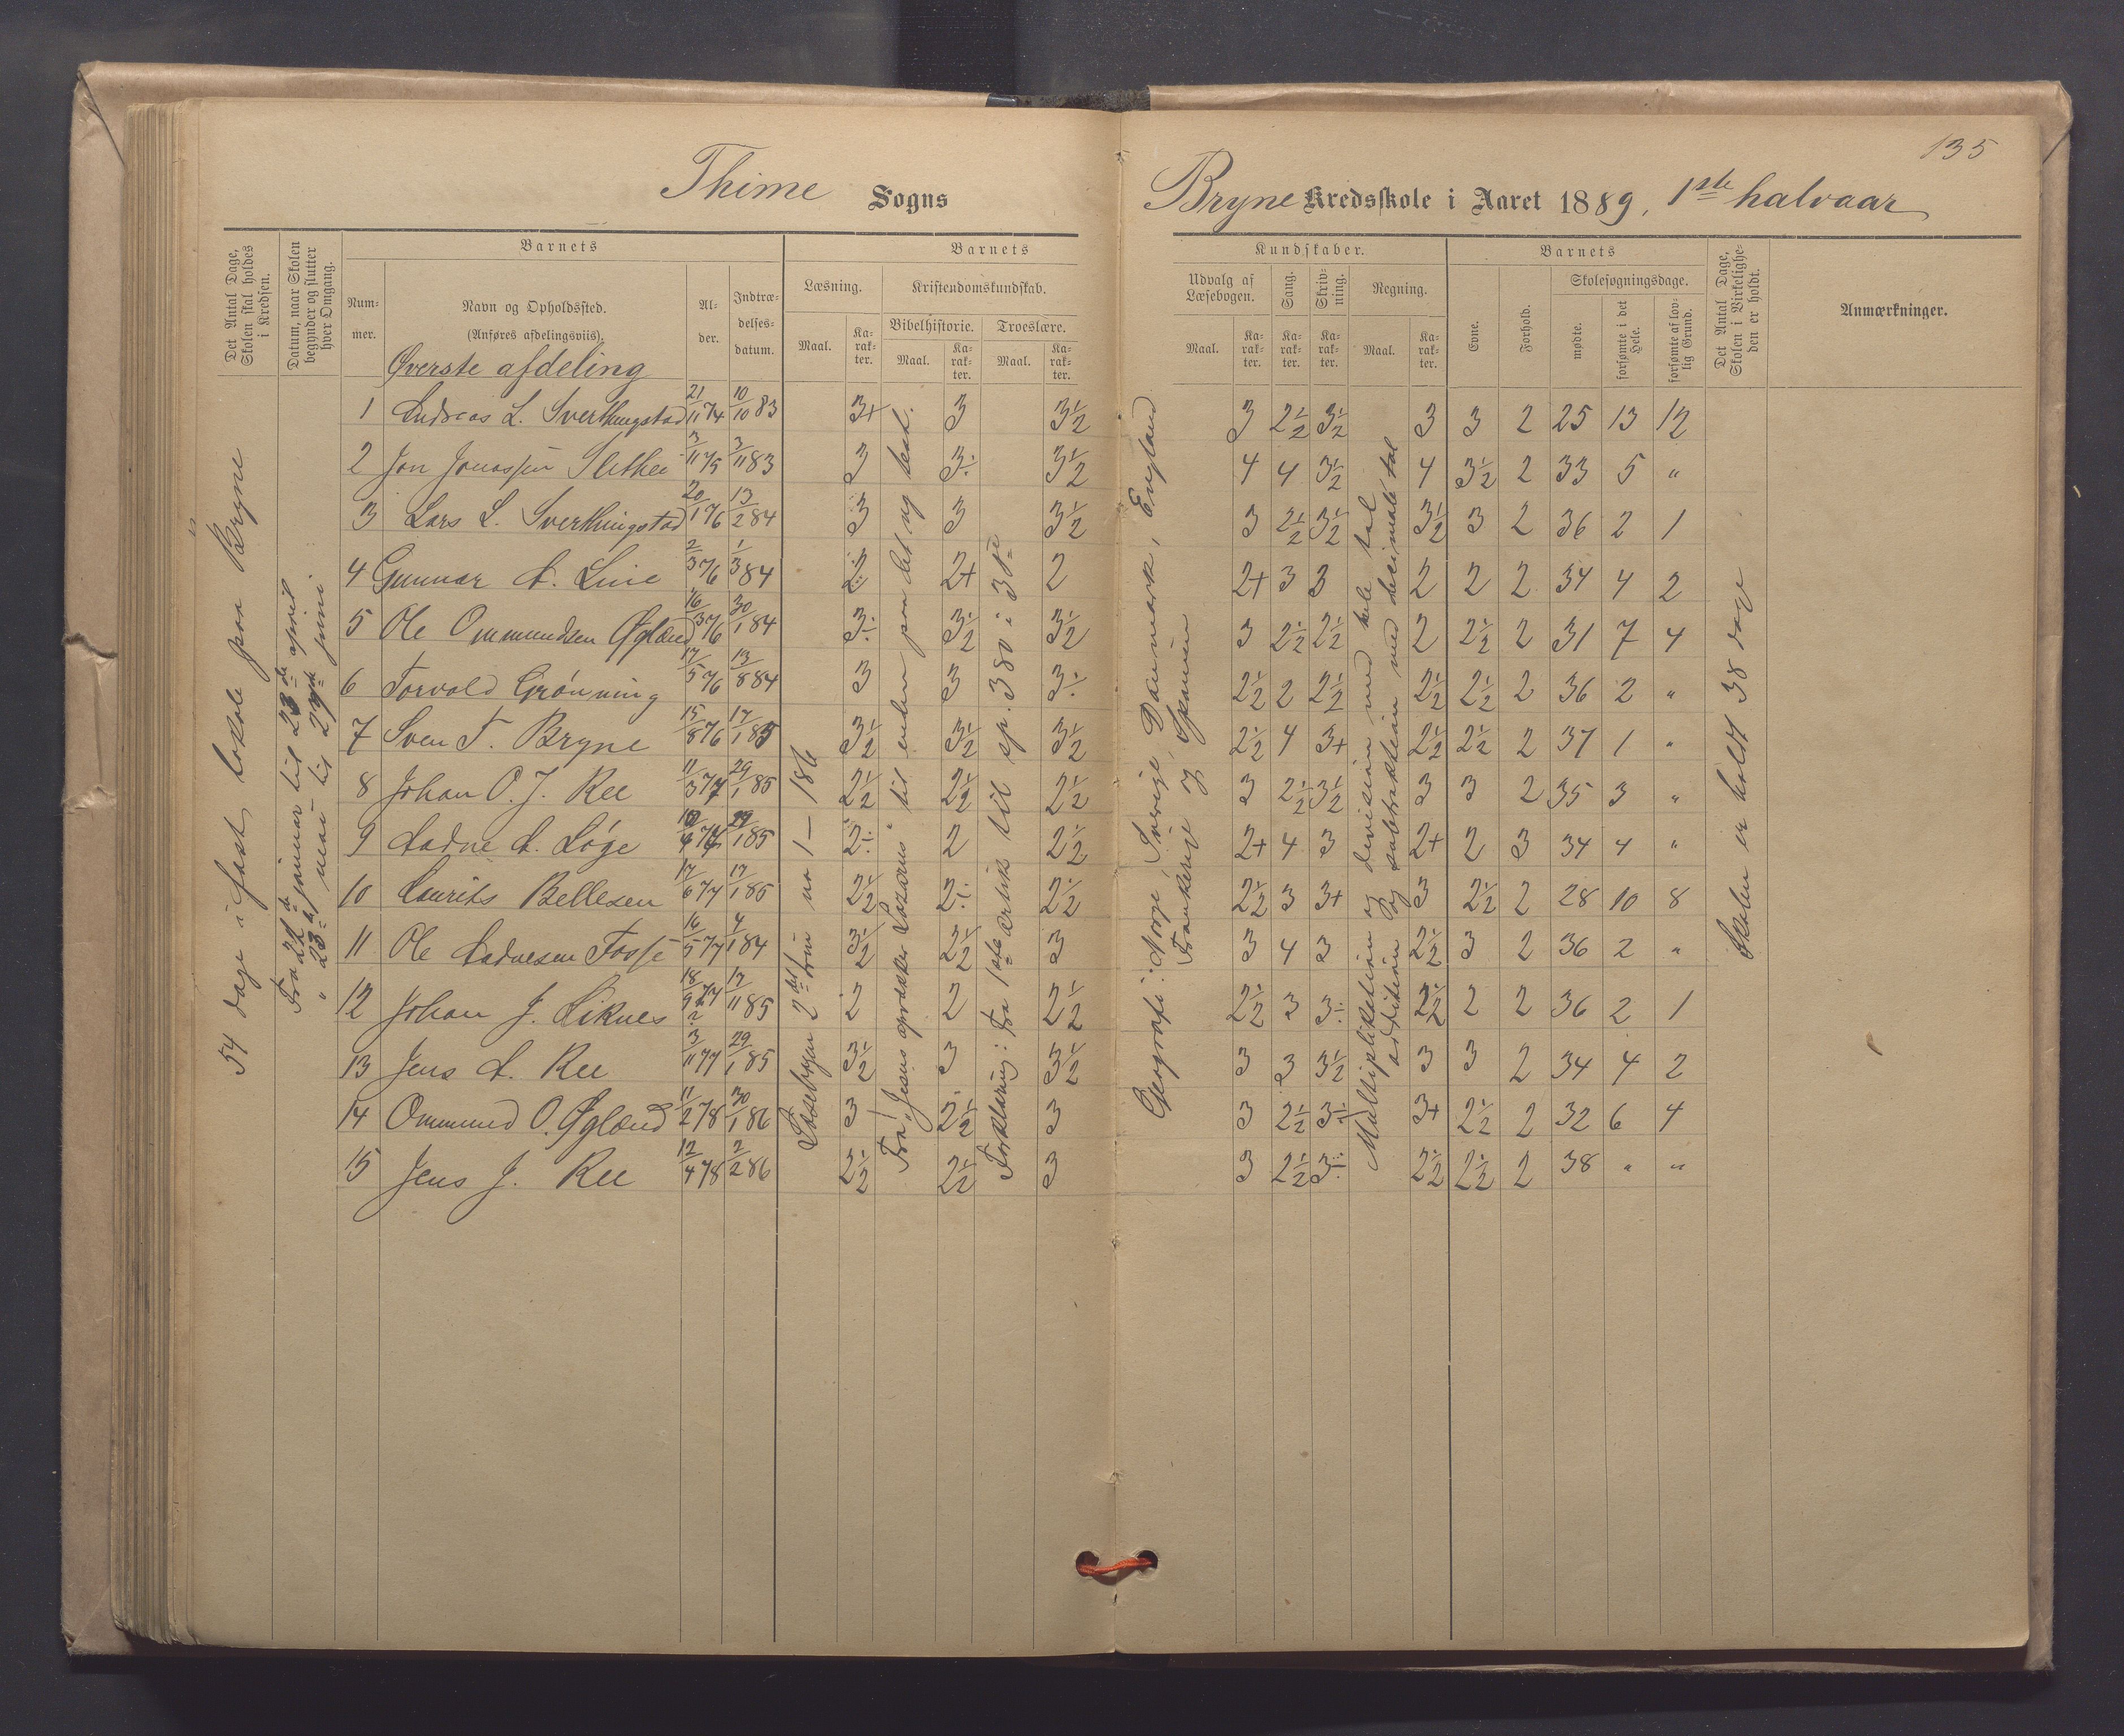 135
Thime Sogns
Bryne Kredsskole i Aaret 1889, 1ste halvaar
Det Antal Dage, Skolen skal holdes i Kredsen.
Datum, naar Skolen begynder og slutter hver Omgang.
Barnets
Num-mer.
Navn og Opholdssted.
(Anføres afdelingsviis).
Al-der.
Indtræ-delses-datum.
Barnets
Læsning.
Maal.
Ka-rak-ter.
Kristendomskundskab.
Bibelhistorie.
Maal.
Ka-rak-ter.
Troeslære.
Maal.
Ka-rak-ter.
Kundskaber.
Udvalg af Læsebogen.
Maal.
Ka-rak-ter.
Sang.
Ka-rak-ter.
Skriv-ning.
Ka-rak-ter.
Regning.
Maal.
Ka-rak-ter.
Barnets
Evne.
Forhold.
Skolesøgningsdage.
mødte.
forsømte i det Hele.
forsømte af lov-lig Grund.
Det Antal Dage, Skolen i Virkelighe-den er holdt.
Anmærkninger.
54 dage i fast lokale paa Bryne
Fra 22de januar til 23de april
" 23de mai til 27de juni
Øverste afdeling
1 Andreas L. Sverthingstad 21/11 74 10/10 83 3+ 3 3½ 3 2½ 3½ 3 3 2 25 13 12
2 Jon Jonassen Slethei 3/11 75 3/11 83 3 3÷ 3½ 4 4 3½ 4 3½ 2 33 5 "
3 Lars L. Sverthingstad 20/1 76 13/2 84 3 3 3½ 3 2½ 3½ 3½ 3 2 36 2 1
4 Gunnar A. Line 2/3 76 1/3 84 2÷ 2+ 2 2+ 3 3 2 2 2 34 4 2
5 Ole Ommundsen Øgland 16/3 76 30/1 84 3÷ 3½ 3½ 3 2½ 2½ 2 2½ 2 31 7 4
6 Torvald Grönning 17/5 76 13/8 84 3 3 3÷ 2½ 2 2½ 2½ 2½ 2 36 2 "
7 Sven T. Bryne 15/8 76 17/1 85 3½ 3½ 3½ 2½ 4 3+ 2½ 2½ 2 37 1 "
8 Johan O. J. Ree 11/3 77 29/1 85 2½ 2½ 2½ 3 2½ 3½ 3 3 2 35 3 "
9 Aadne A. Løge 29/1 85 2÷ 2 2½ 2+ 4 3 2+ 2 3 34 4 "
10 Laurits Bellesen 17/6 77 17/1 85 2½ 2÷ 2½ 2½ 3 3+ 3 2½ 2 28 10 8
11 Ole Aadnesen Fosse 16/5 77 4/1 84 3½ 2½ 3 3 4 3 2½ 3 2 36 2 "
12 Johan J. Liknes 18/9 77 17/11 85 2 2 2½ 2½ 3 3÷ 2½ 2 2 36 2 1
13 Jens A. Ree 3/11 77 29/1 85 3½ 3 3½ 3 3 3½ 3 3 2 34 4 2
14 Ommund O. Øgland 11/2 78 30/1 86 3 2½ 3 3 2½ 3÷ 3+ 2½ 2 32 6 4
15 Jens J. Ree 12/4 78 2/2 86 2½ 2½ 3 3 2½ 3÷ 2½ 2½ 2 38 " "
Læsebogen 2det trin no 1 — 186
Fra "Jesus opvækker Lazarus" til enden paa det ny test.
Forklaring: Fra 1ste artik til sp. 380 i 3die
Geografi: Norge, Sverige, Danmark, England
Frankerige og Spanien
Multiplikktion og devision med hele tal
og adition og subtraktion med decimale tal
Skolen er holdt 38 dage